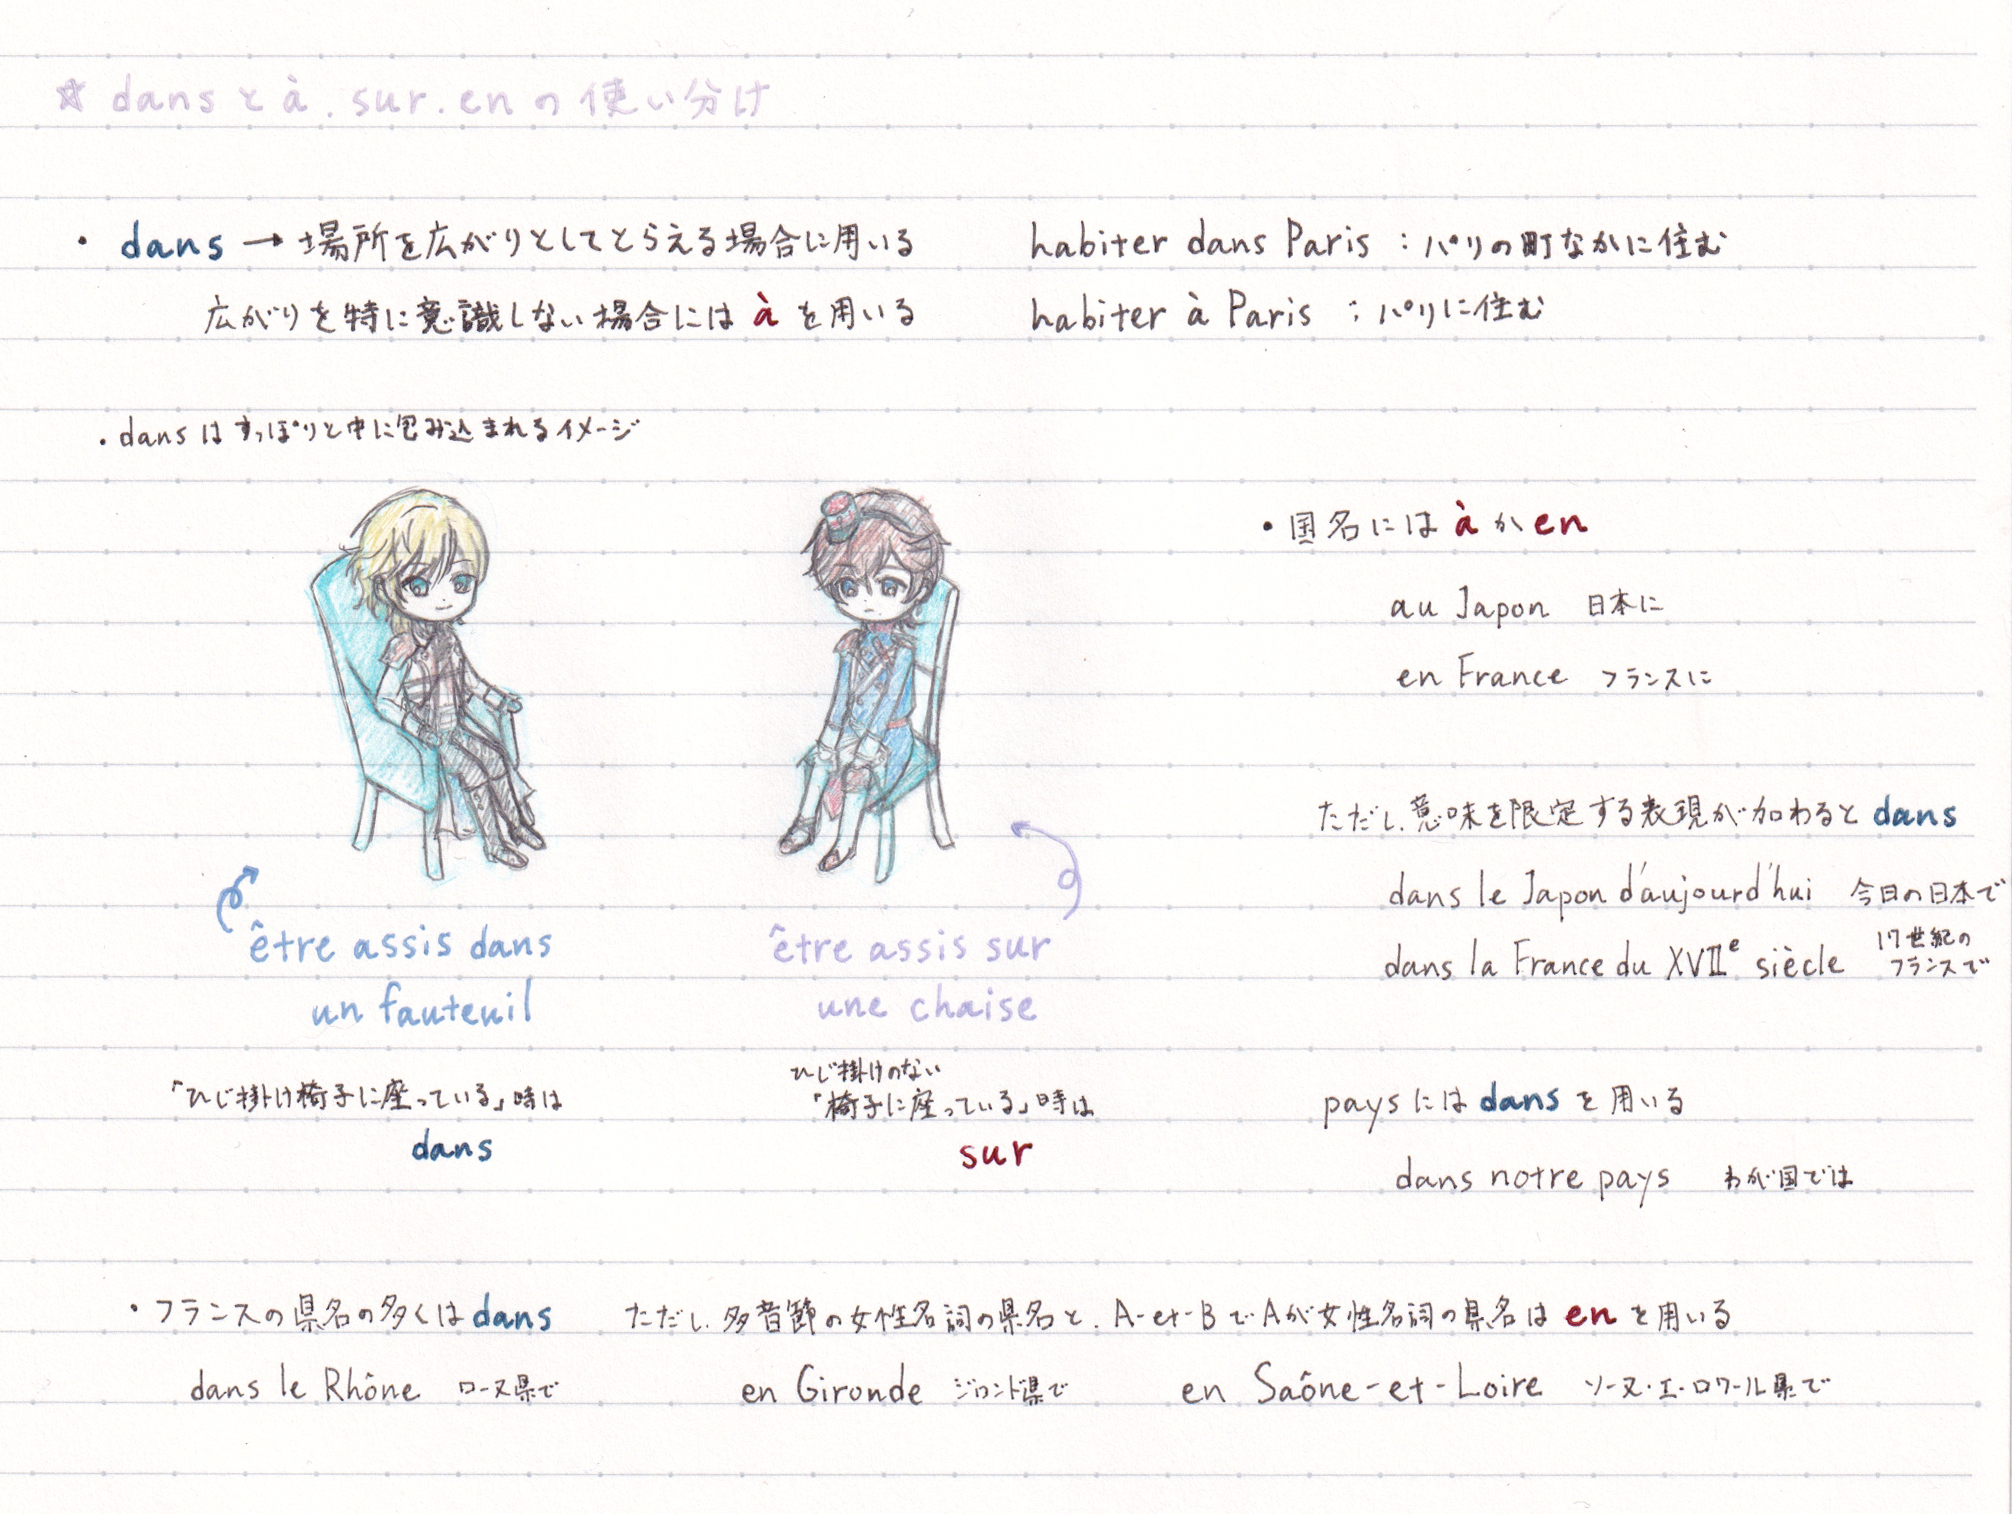 ☆ dansとà.sur.enの使い分け
・dans→場所を広がりとしてとらえる場合に用いる
habiter dans Paris：パリの町なかに住む
広がりを特に意識しない場合にはàを用いる
habiter à Paris：パリに住む
・dansはすっぽりと中に包み込まれるイメージ
être assis dans
un fauteuil
「ひじ掛け椅子に座っている」時は
dans
être assis sur
une chaise
ひじ掛けのない
「椅子に座っている」時は
sur
・国名にはàかen
au Japon 日本に
en France フランスに
ただし、意味を限定する表現が加わるとdans
dans le Japon d'aujourd'hui 今日の日本で
dans la France du XVIIe siècle 17世紀の
フランスで
paysにはdansを用いる
dans notre pays わが国では
・フランスの県名の多くはdans ただし、多音節の女性名詞の県名と、A-et-BでAが女性名詞の県名はenを用いる
dans le Rhône ローヌ県で en Gironde ジロンド県で en Saône-et-Loire ソーヌ・エ・ロワール県で